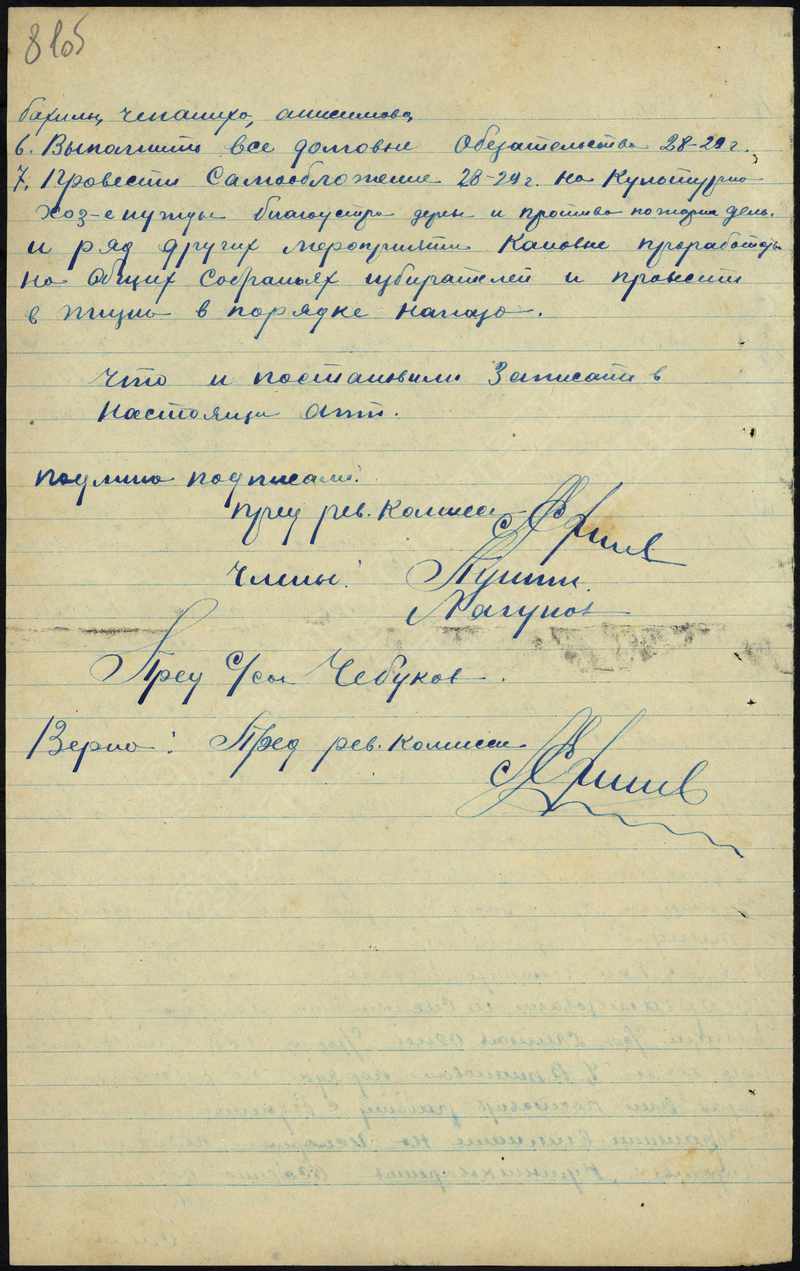 8 об
бахилы, чепаниха, анисимова,
6. Выполнить все долговые Обезательства 28-29 г.
7. Провести Самообложение 28-29 г. на Культурно
Хоз-е нужды благоустро дерев и противо пожарн дель.
и ряд других мероприяти Каковые проработать
на Общих Собраньях избирателей и провести
в жизнь в порядке наказа.
Что и постановили Записать в
Настоящи акт.
подлино подписали:
пред рев. Комиси
Члены:
Лагунов
Пред с/сов Чебуков.
Верно: Пред рев. комиси